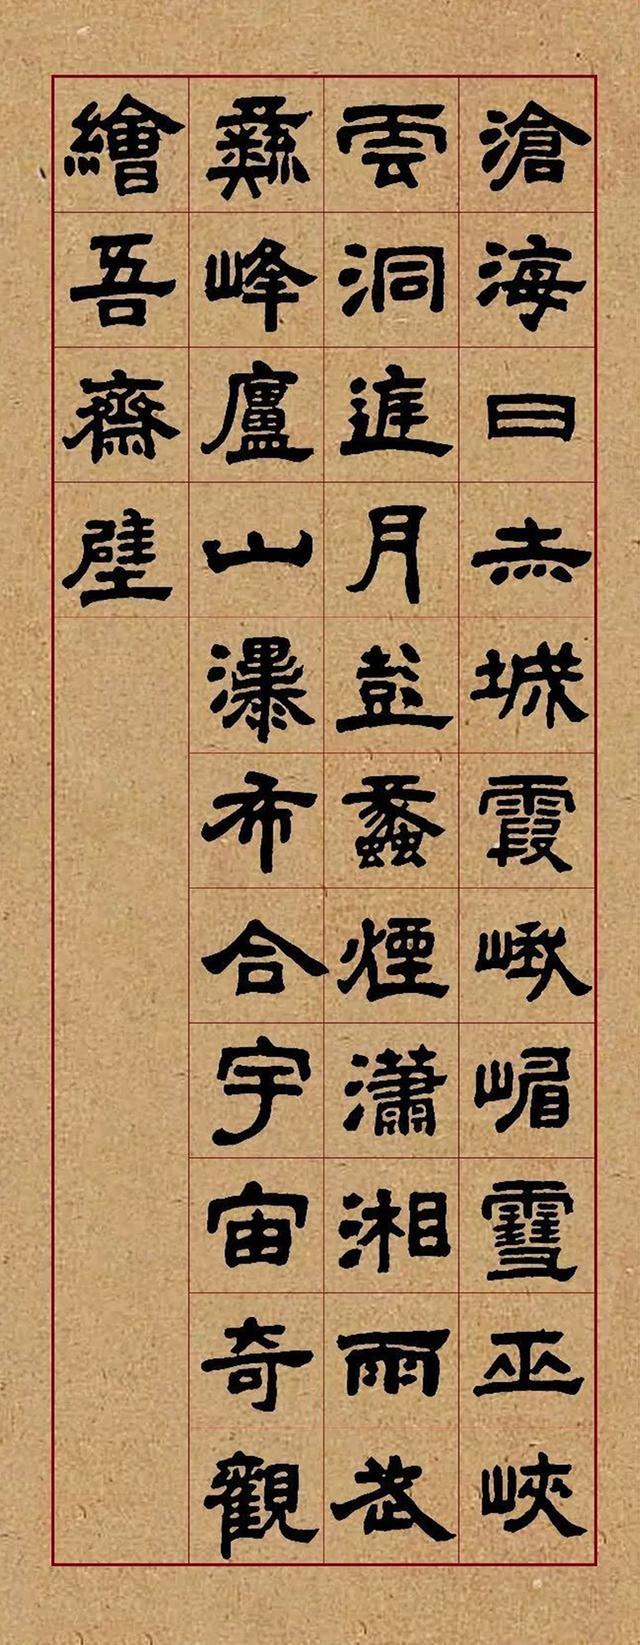 滄海日赤城霞峨嵋雪巫峽
雲洞庭月彭蠡煙瀟湘雨武
彝峰廬山瀑布合宇宙奇觀
繪吾齋壁